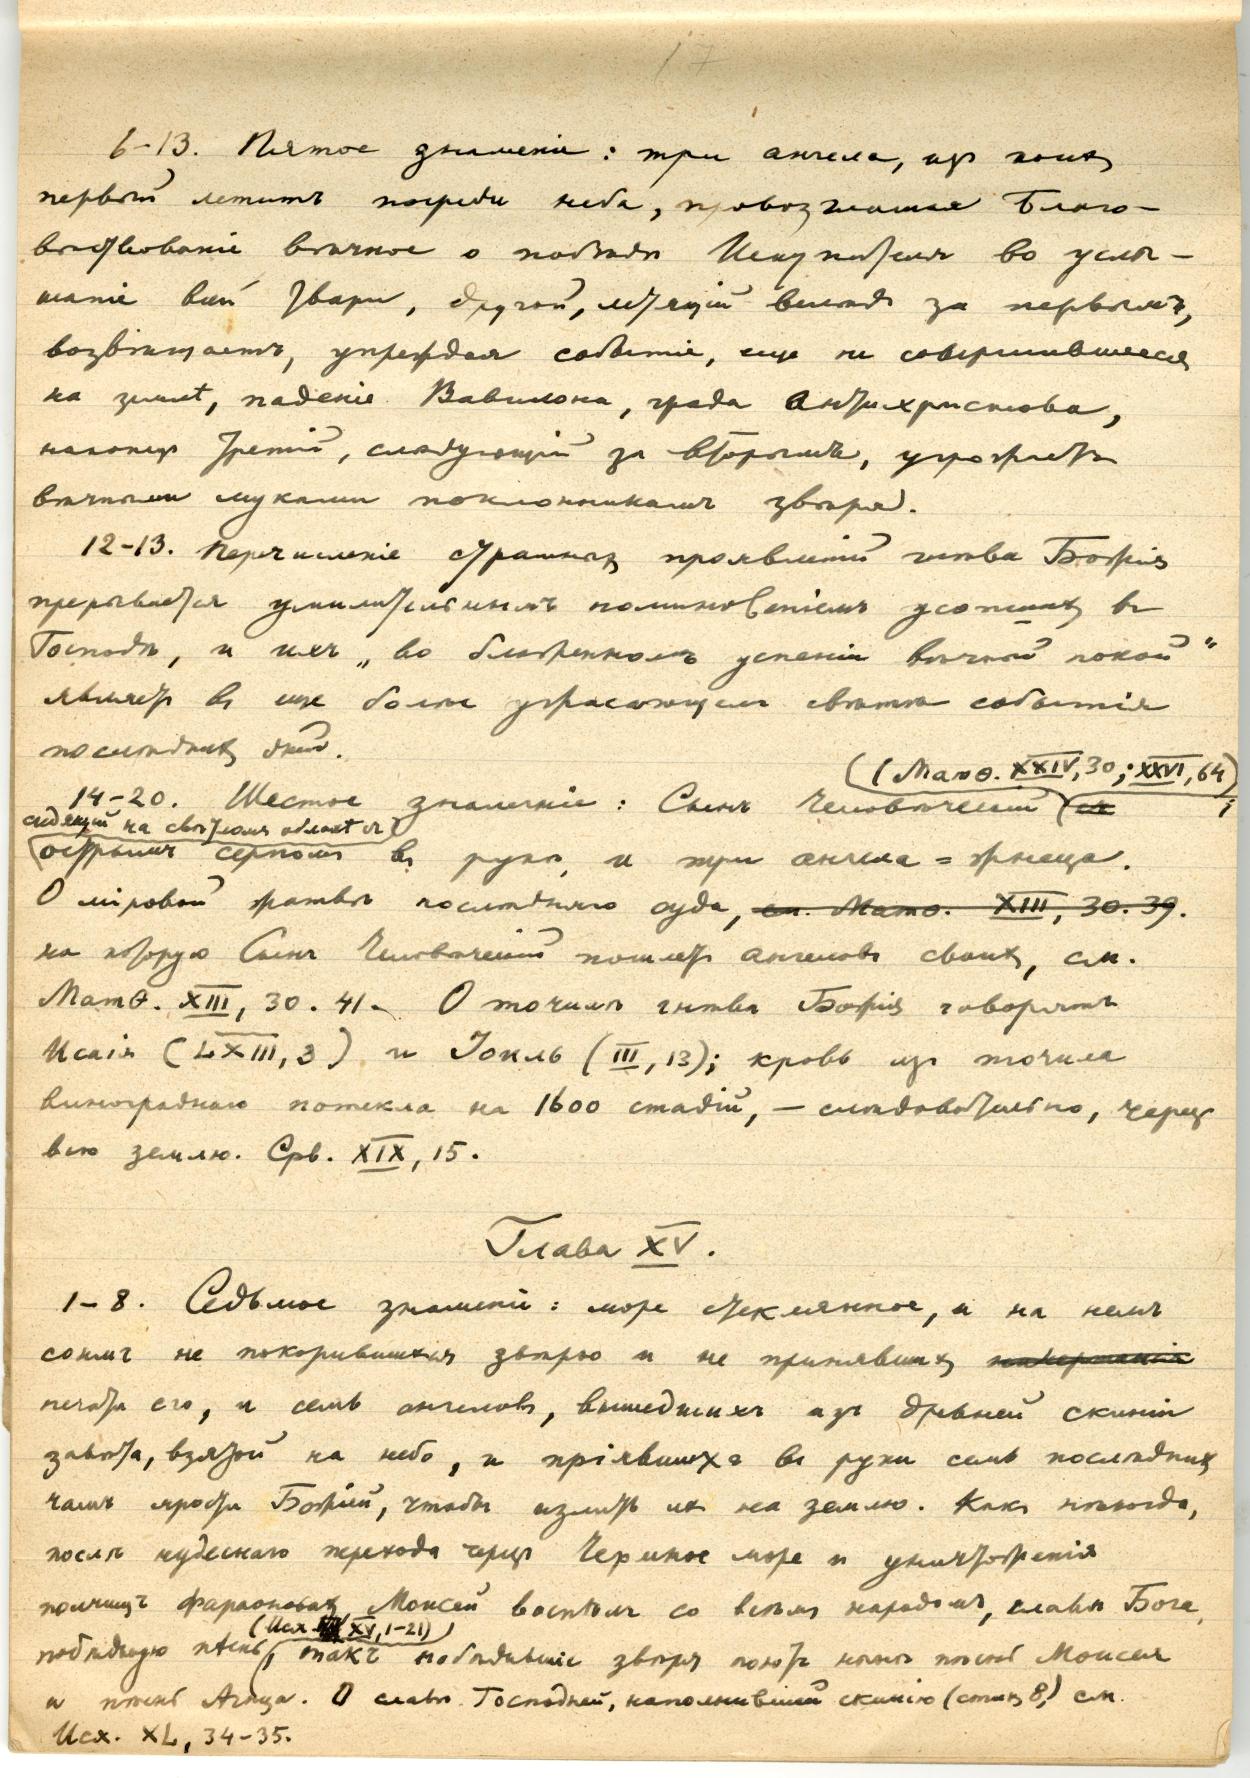 17
6-13. Пятое знаменіе: три ангела, изъ коихъ
первый летитъ посреди неба, провозглашая Благо-
вѣствованіе вѣчное о побѣдѣ Искупителя во услы-
шаніе всей твари, другой, летящій вслѣдъ за первымъ,
возвѣщаетъ, упреждая событіе, еще не совершившееся
на землѣ, паденіе Вавилона, града Антихристова,
наконецъ третій, слѣдующій за вторымъ, угрожаетъ
вѣчными муками поклонникамъ звѣря.
12-13. Перечисленіе страшныхъ проявленій гнѣва Божія
прерывается умилительнымъ поминовеніемъ усопшихъ въ
Господѣ, и ихъ „во блаженномъ успеніи вѣчный покой“
являетъ въ еще болѣе ужасающемъ свѣтѣ событія
послѣднихъ дней.
(Матѳ. XXIV, 30; XXVI, 64)
14-20. Шестое знаменіе: Сынъ Человѣческій (съ
сидящій на свѣтломъ облакѣ съ
острымъ серпомъ въ рукѣ, и три ангела = жнеца.
О міровой жатвѣ послѣдняго суда, см. Матѳ. XIII, 30. 39.
на которую Сынъ Человѣческій пошлетъ ангеловъ своихъ, см.
Матѳ. XIII, 30. 41. О точилѣ гнѣва Божія говорятъ
Исаія (LXIII, 3) и Іоиль (III, 13); кровь изъ точила
винограднаго потекла на 1600 стадій, — слѣдовательно, черезъ
всю землю. Срв. XIX, 15.
Глава XV.
1-8. Седьмое знаменіе: море стеклянное, и на немъ
сонмъ не покорившихся звѣрю и не принявшихъ начертанія
печати его, и семь ангеловъ, вышедшихъ изъ древней скиніи
завѣта, взятой на небо, и пріявшихъ въ руки семь послѣднихъ
чашъ ярости Божіей, чтобы излить ихъ на землю. Какъ нѣкогда,
послѣ чудеснаго перехода черезъ Чермное море и уничтоженія
полчищъ фараоновыхъ Моисей воспѣлъ со всѣмъ народомъ, славя Бога,
(Исх. XV, 1-21)
побѣдную пѣснь, такъ побѣдившіе звѣря поютъ нынѣ пѣснь Моисея
и пѣснь Агнца. О славѣ Господней, наполнившей скинію (стихъ 8,) см.
Исх. XL, 34-35.